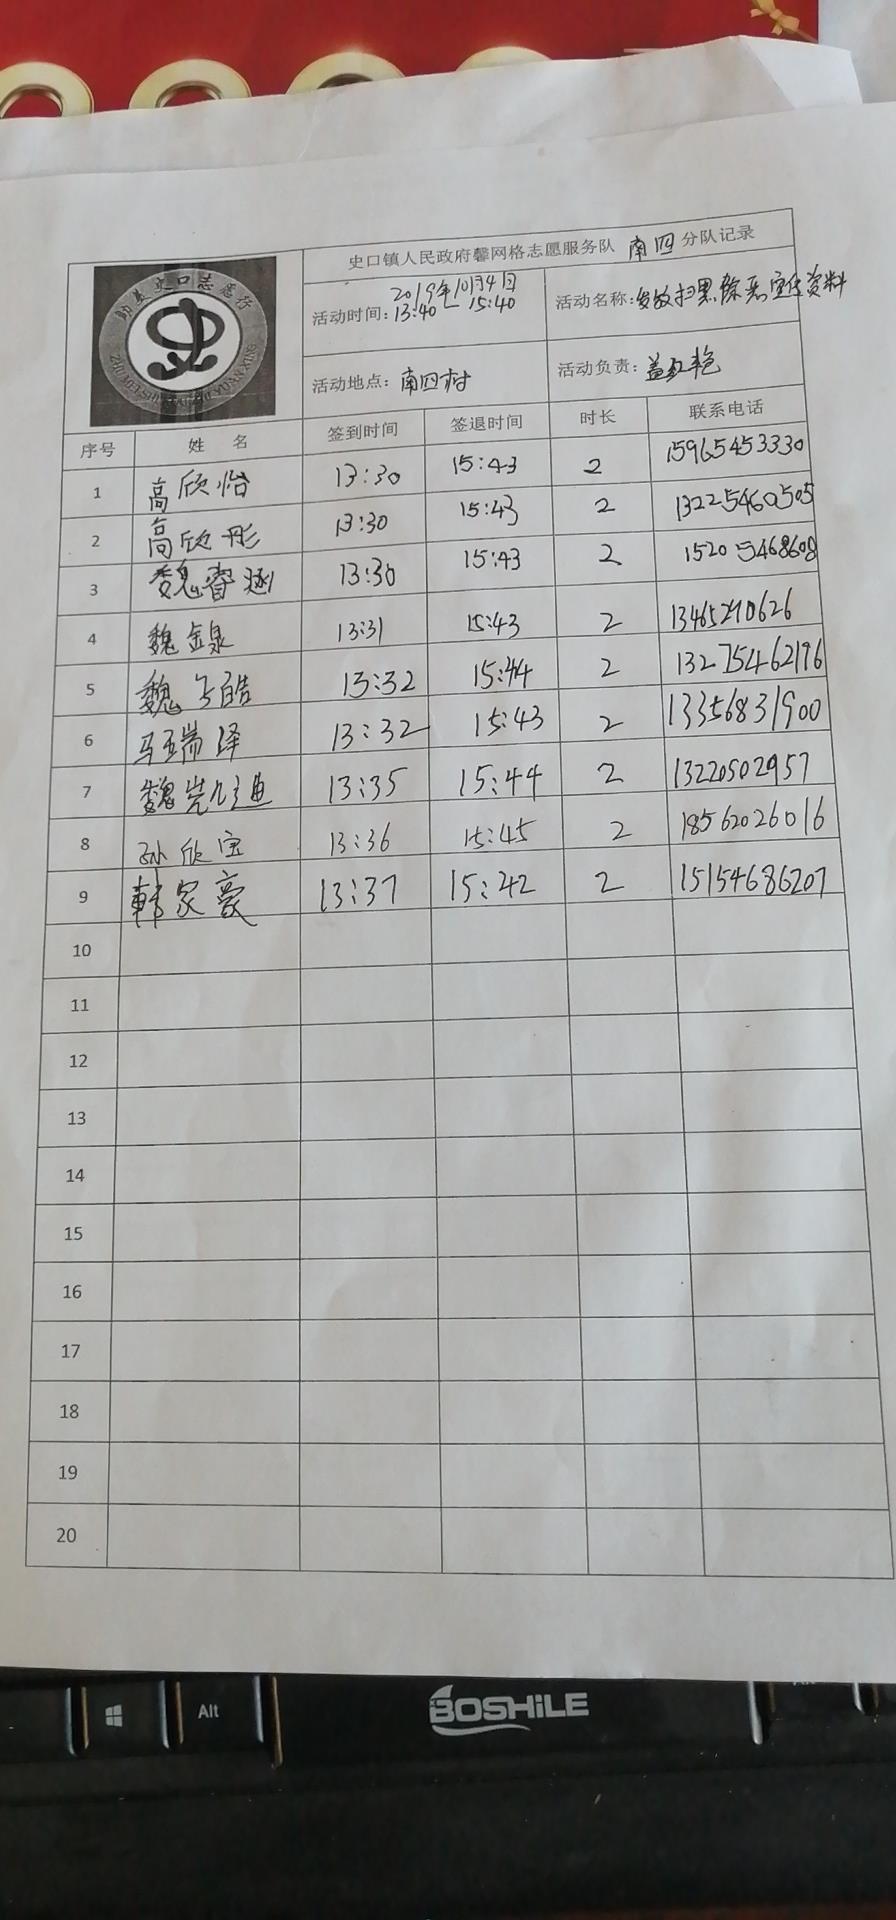 助美史口志愿行
ZHU MEI SHI KOU ZHI YUAN XING
史口镇人民政府馨网格志愿服务队 南四 分队记录
2019年10月4日
活动时间：13:40 — 15:40 活动名称：发放扫黑除恶宣传资料
活动地点：南四村 活动负责：盖红艳
序号 姓 名 签到时间 签退时间 时长 联系电话
1 高欣怡 13:30 15:43 2 15965453330
2 高欣彤 13:30 15:43 2 13225460505
3 魏睿涵 13:30 15:43 2 15205468608
4 魏 13:31 15:43 2 13465270626
5 魏子皓 13:32 15:44 2 13275462196
6 马瑞泽 13:32 15:43 2 13356831900
7 魏 13:35 15:44 2 13220502957
8 孙欣宝 13:36 15:45 2 18562026016
9 韩家豪 13:37 15:42 2 15154686207
10
11
12
13
14
15
16
17
18
19
20
Alt BOSHILE